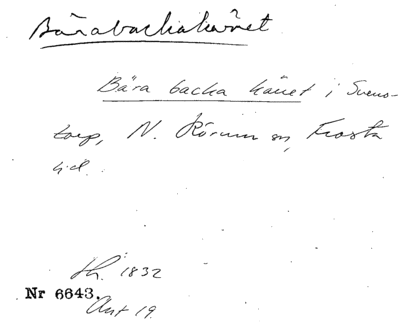 Bärabackakäret
Bära backa käret i Svens-
torp, N. Rörum sn, Frosta
hd.
Sk. 1832
Nr 6643.
Akt 19.